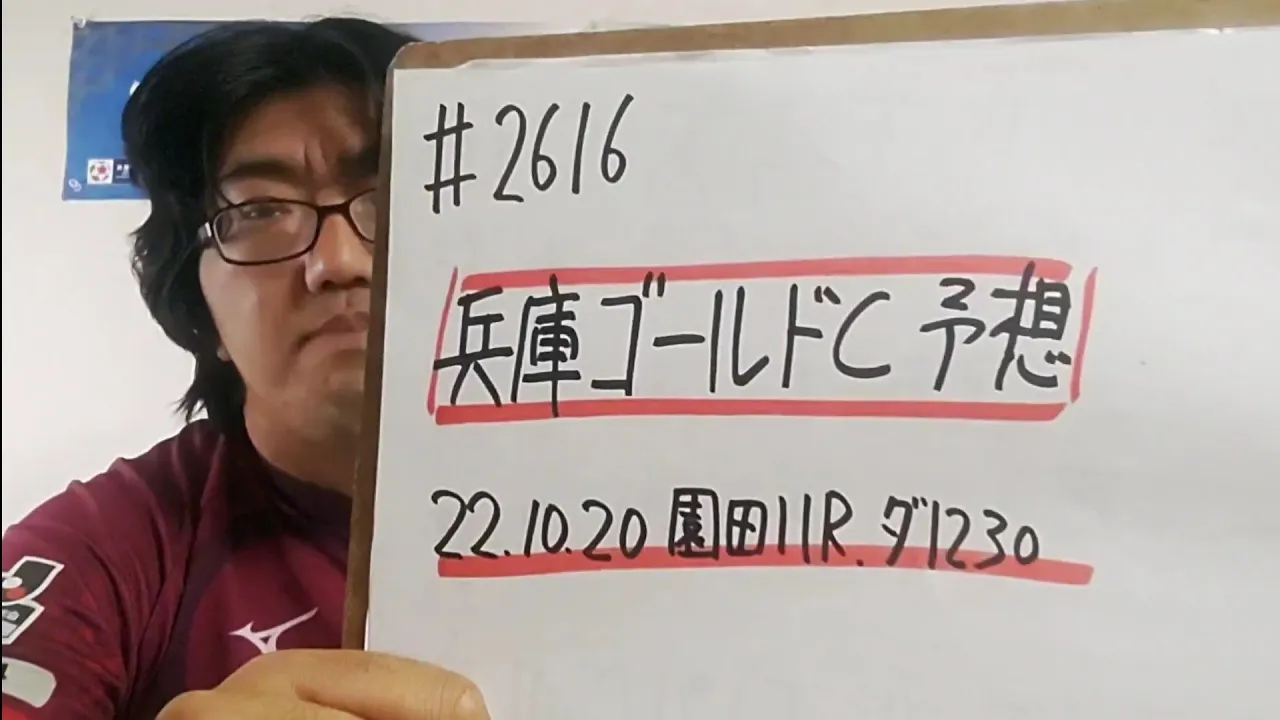 #2616
兵庫ゴールドC予想
22.10.20園田11R.ダ1230